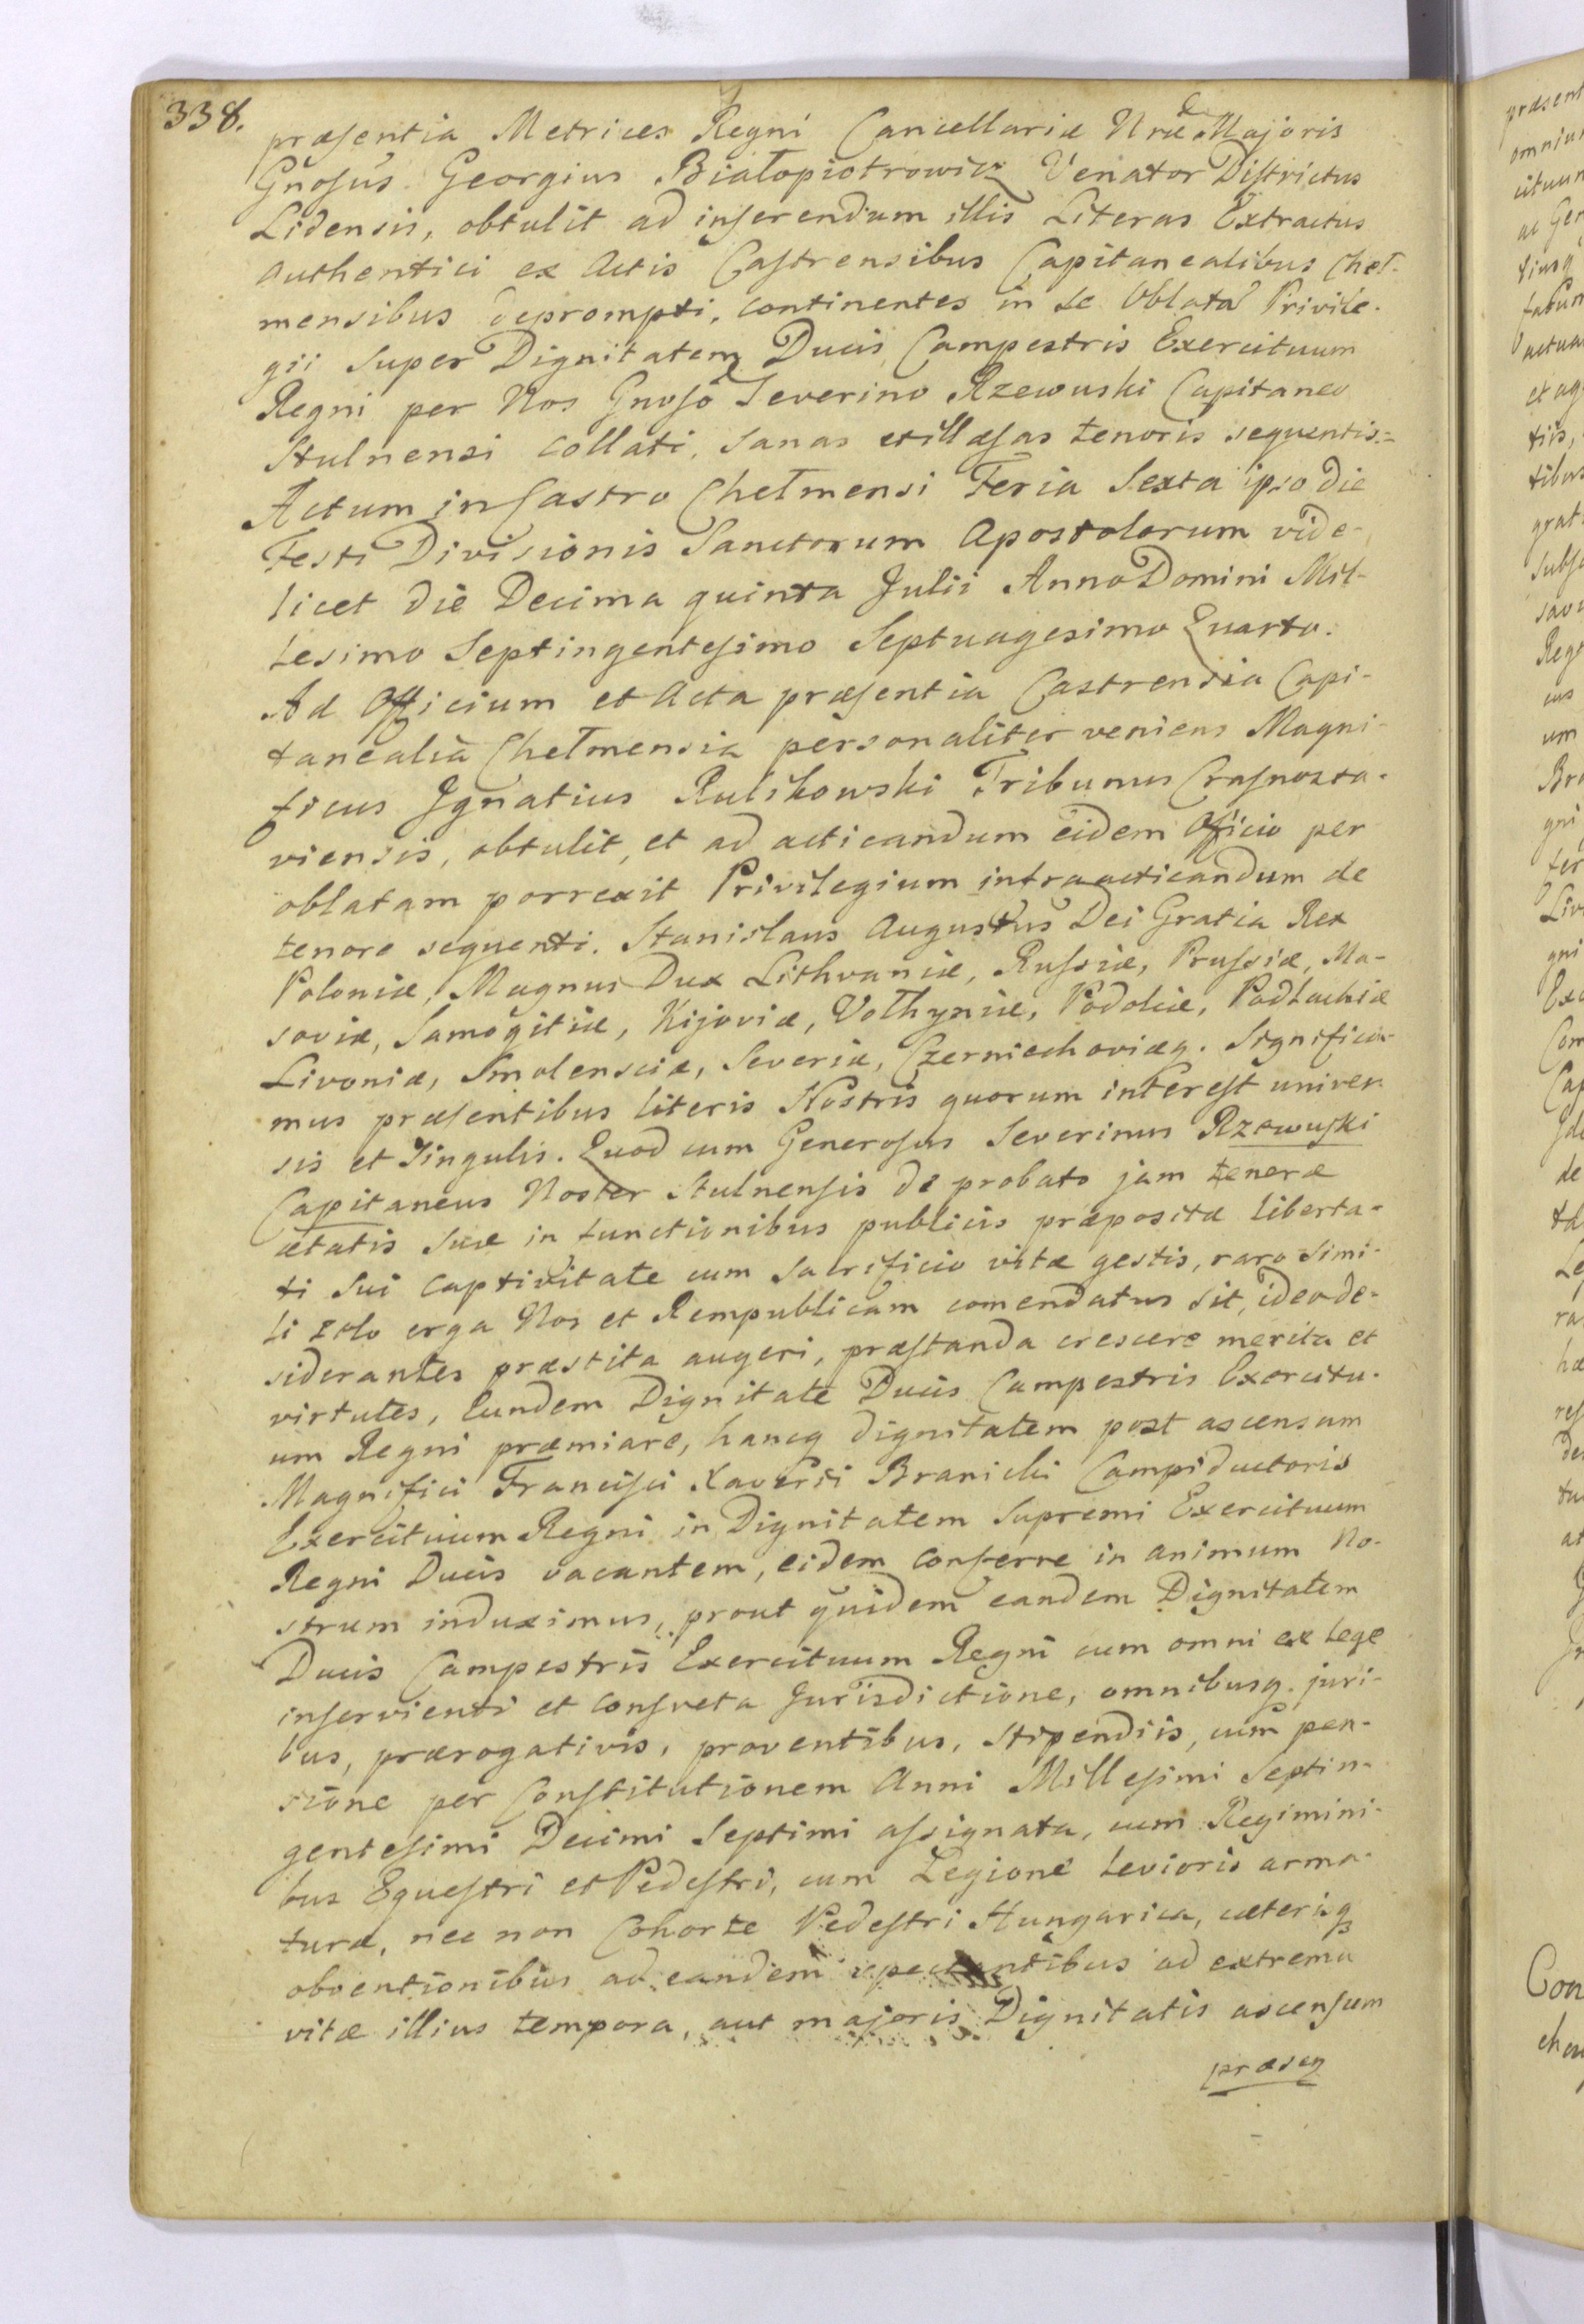 338.
præsentia Metrices Regni Cancellariæ Nræ Majoris
Gnosus Georgius Białopiotrowicz Venator Districtus
Lidensis, obtulit ad inserendum illis Literas Extractus
authentici ex Actis Castrensibus Capitanealibus Cheł-
mensibus deprompti, continentes in se Oblatã Privile-
gii super Dignitatem Ducis Campestris Exercituum
Regni per Nos Gnoso Severino Rzewuski Capitaneo
Stulnensi collati, sanas et illæsas tenoris sequentis:=
Actum in Castro Chełmensi Feria Sexta ipso die
Festi Divisionis Sanctorum Apostolorum vide-
licet die Decima quinta Julii Anno Domini Mil-
lesimo Septingentesimo Septuagesimo Quarto.
Ad Officium et Acta præsentia Castrensia Capi-
tanealia Chełmensia personaliter veniens Magni-
ficus Ignatius Rulikowski Tribunus Crasnosta-
viensis, obtulit, et ad acticandum eidem Officio per
oblatam porrexit Privilegium infraacticandum de
tenore sequenti. Stanislaus Augustus Dei Gratia Rex
Poloniæ, Magnus Dux Lithvaniæ, Russiæ, Prussiæ, Ma-
soviæ, Samogitiæ, Kijoviæ, Vołhyniæ, Podoliæ, Podlachiæ
Livoniæ, Smolensciæ, Severiæ, Czerniechoviæq. Significa-
mus præsentibus literis Nostris quorum interest univer
sis et singulis. Quod cum Generosus Severinus Rzewuski
Capitaneus Noster Stulnensis de probato jam teneræ
ætatis suæ in functionibus publicis præposita liberta-
ti sui captivitate cum sacrificio vitæ gestis, raro simi-
li zelo erga Nos et Rempublicam comendatus sit, ideo de-
siderantes præstita augeri, præstanda crescere merita et
virtutes, Eundem Dignitate Ducis Campestris Exercitu-
um Regni præmiare, hancq dignitatem post ascensum
Magnifici Francisci Xaverii Branicki Campiductoris
Exercituum Regni in Dignitatem Supremi Exercituum
Regni Ducis vacantem, eidem conferre in animum No-
strum induximus, prout quidem eandem Dignitatem
Ducis Campestris Exercituum Regni cum omni ex lege
inservienti et consveta Jurisdictione, omnibusq. juri-
bus, prærogativis, proventibus, stipendiis, cum pen-
sione per Constitutionem Anni Millesimi Septin-
gentesimi Decimi Septimi assignata, cum Regimini-
bus Equestri et Pedestri, cum Legione levioris arma-
turæ, nec non Cohorte Pedestri Hungarica, cæterisq
obventionibus ad eandem spectantibus ad extrema
vitæ illius tempora, aut majoris Dignitatis ascensum
præsen